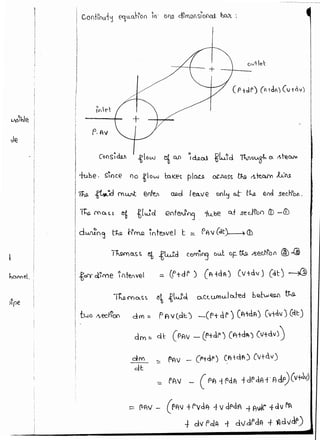 Continuty equation in one dimensional here :
outlet
(ρ+dρ) (A+dA) (v+dv)
inlet
ρ. AV
Consider flow of an ideal fluid Through a steam
tube. Since no flow takes place across the steam lins
The fluid must enter and leave only at the end section.
The mass of fluid entering tube at section ① - ①
during the time intervel t = ρAV(dt) → ①
Themass of fluid coming out of the section ② - ②
for dime intervel = (ρ+dρ) (A+dA) (v+dv) (dt) → ②
Themass of fluid accumulated between the
two section dm = ρAV(dt) - (ρ+dρ) (A+dA) (v+dv) (dt)
dm = dt (ρAV - (ρ+dρ) (A+dA) (v+dv))
dm/dt = ρAV - (ρ+dρ) (A+dA) (v+dv)
= ρAV - (ρA + ρdA + dρdA + Adρ) (v+dv)
= ρAV - (ρAV + ρvdA + v dρdA + Avdρ + dv ρA
+ dv ρdA + dvdρdA + Advdρ)